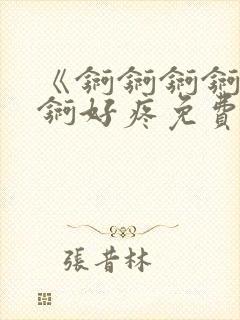 《锕锕锕锕
锕好疼免費
張昔林